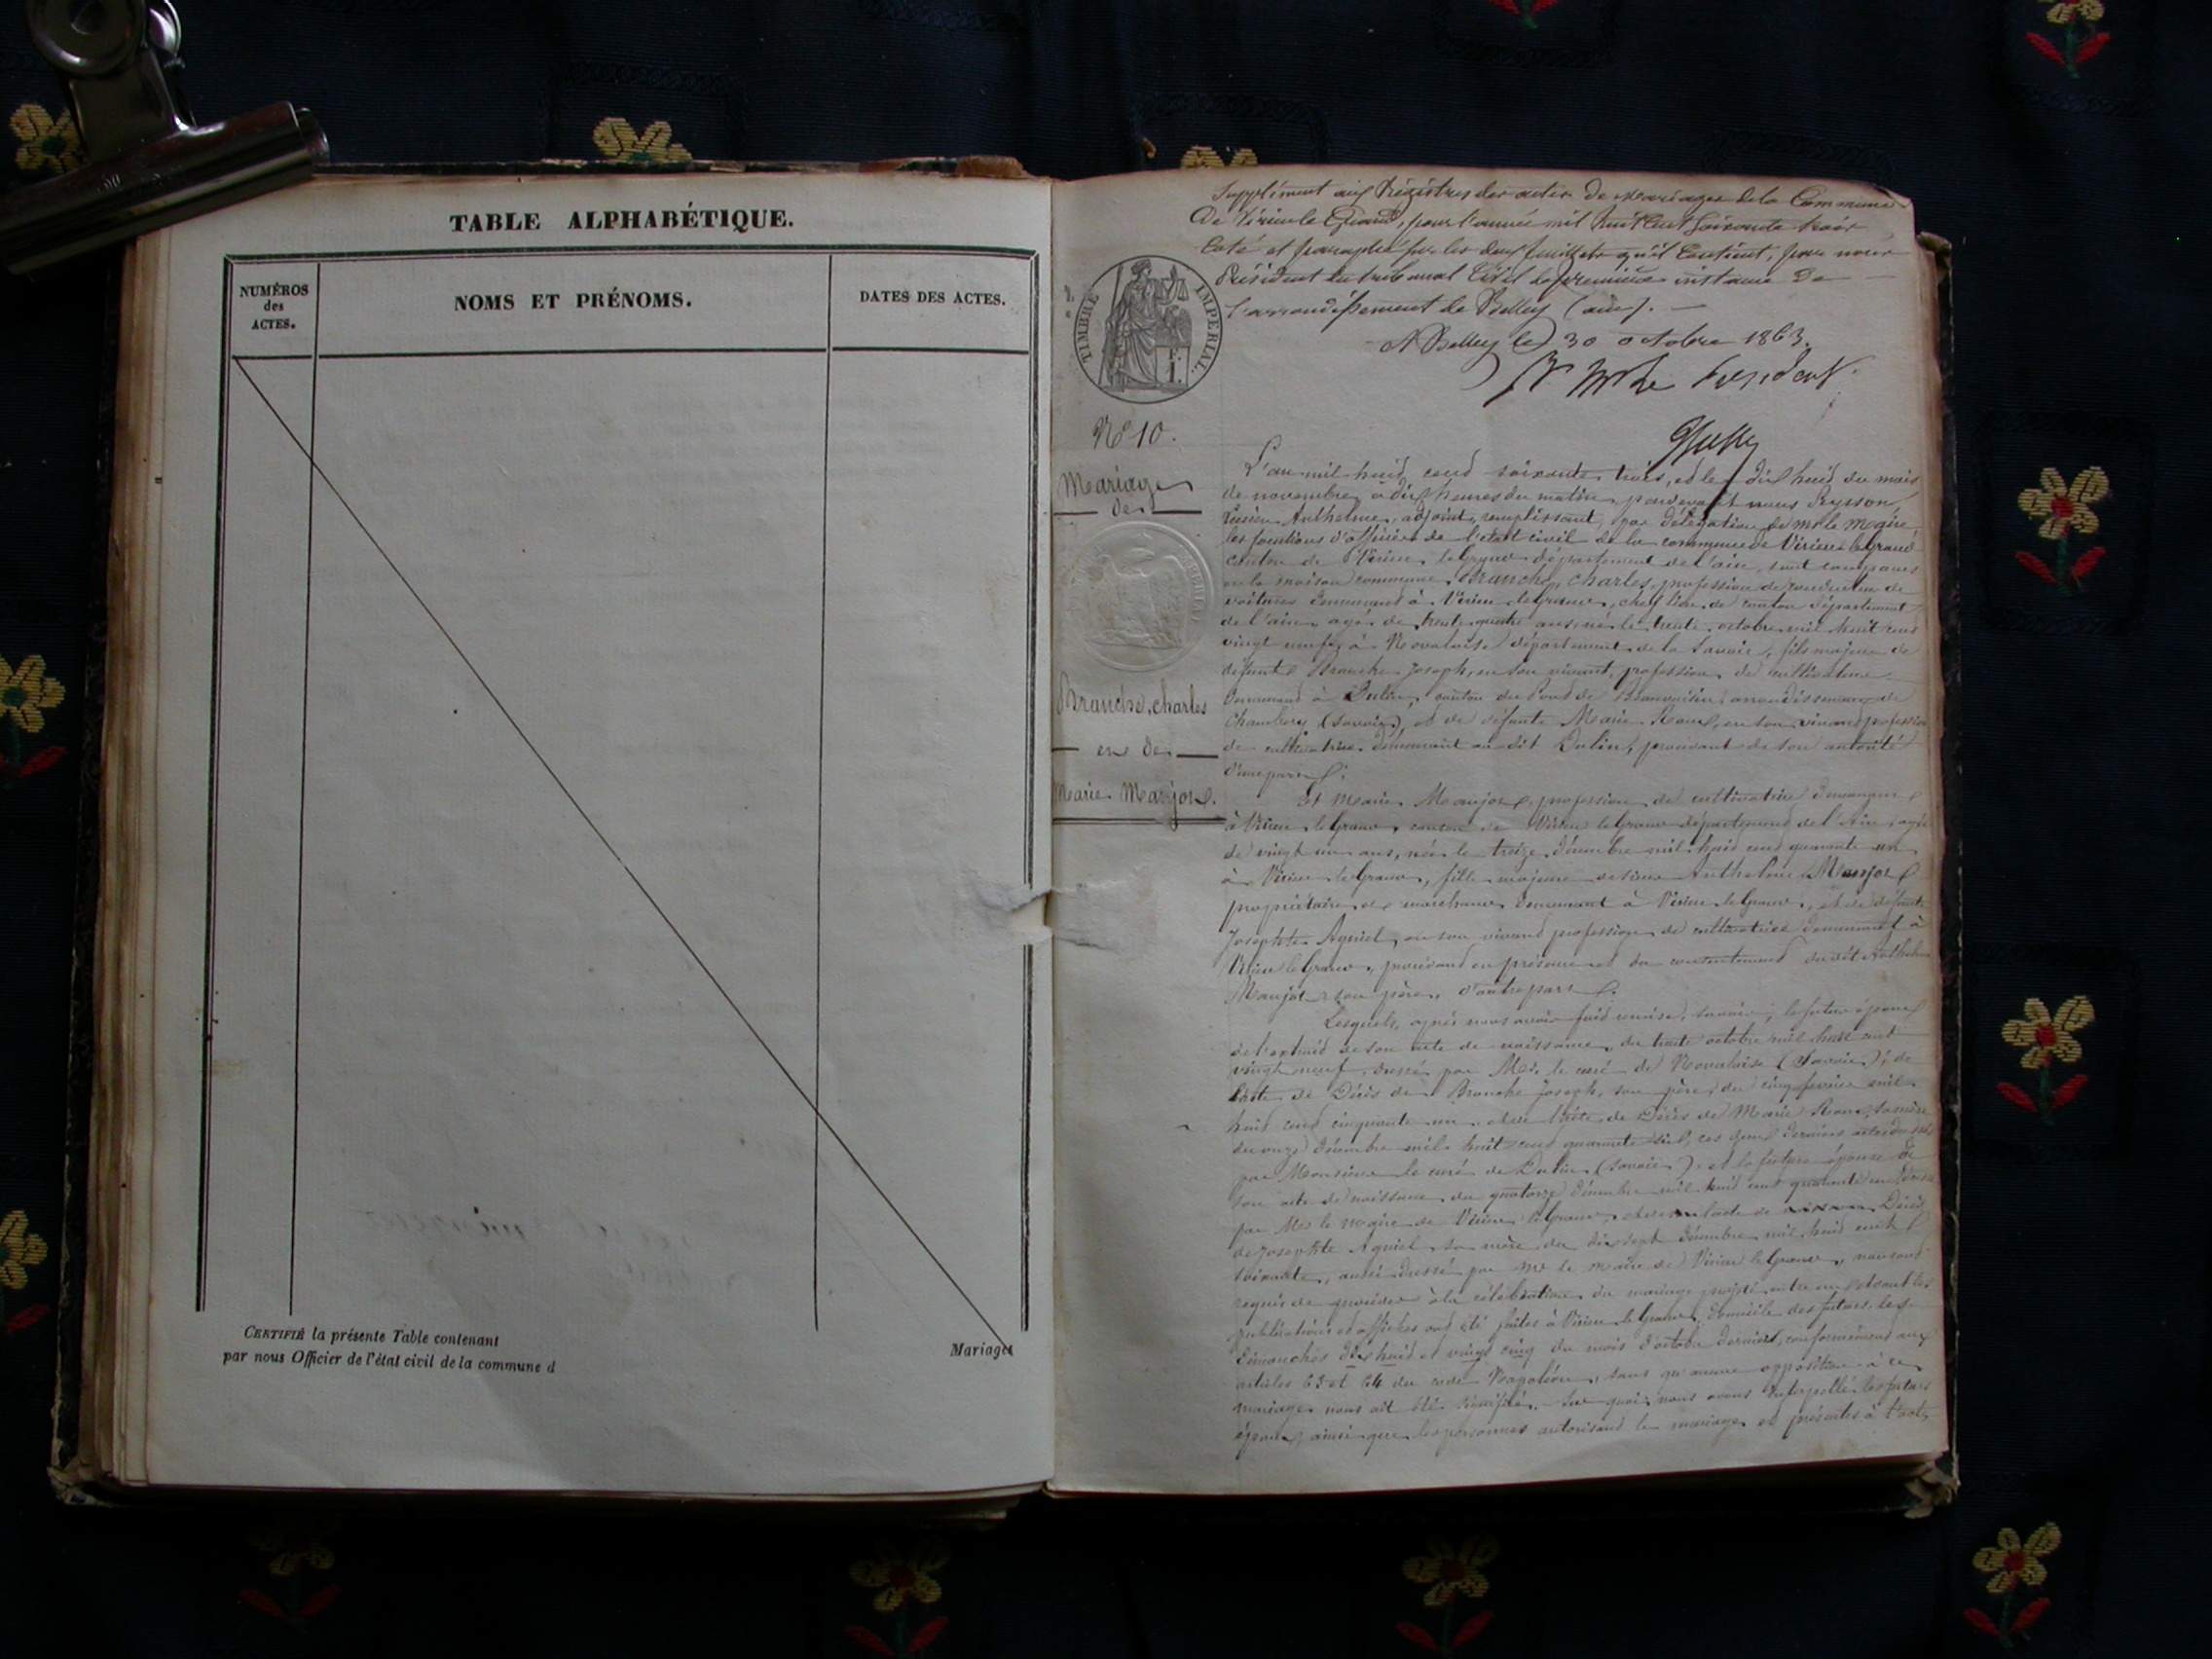 TABLE ALPHABÉTIQUE.
NUMÉROS
des
ACTES.
NOMS ET PRÉNOMS.
DATES DES ACTES.
CERTIFIÉ la présente Table contenant
par nous Officier de l'état civil de la commune d
Mariages
Supplément aux Régistres des actes De Mariages de la Commune
De Virieu le Grand, pour l'année mil huit Cent Soixante trois
Coté et paraphé sur les deux feuillets qu'il Contient, par nous
Président du tribunal Civil de première instance De
l'arrondissement de Belley (ain). —
A Belley le 30 octobre 1863.
TIMBRE IMPERIAL.
No 10.
Mariage
de
Branche, charles
et de
Marie Manjot.
L'an mil huit cent soixante trois, et le dix huit du mois
de novembre, à dix heures du matin, pardevant nous Peysson
Anthelme, adjoint, remplissant, par délégation de mr le Maire
les fonctions d'officier de l'état civil de la commune de Virieu le Grand
canton de Virieu le Grand département de l'ain, sont comparus
en la maison commune, Branche, charles, profession de conducteur de
voitures demeurant à Virieu le Grand, chef lieu de canton département
de l'ain, agé de trente quatre ans né le trente octobre mil huit cent
vingt neuf, à Novalaise département de la Savoie, fils majeur de
défunt Branche Joseph, en son vivant, profession de cultivateur
demeurant à Dulin, canton du Pont de Beauvoisin, arrondissement de
Chambéry (Savoie), et de défunte Marie en son vivant profession
de cultivatrice, demeurant au dit Dulin, procédant de son autorité
d'une part.
Et Marie Manjot, profession de cultivatrice demeurant
à Virieu le Grand, canton de Virieu le Grand département de l'Ain, agée
de vingt un ans, née le treize décembre mil huit cent quarante un
à Virieu le Grand, fille majeure de sieur Anthelme Manjot
propriétaire et marchand demeurant à Virieu le Grand, et de défunte
Josephte Aguiel, en son vivant profession de cultivatrice demeurant à
Virieu le Grand, procédant en présence et du consentement du dit Anthelme
Manjot son père, d'autre part.
Lesquels, après nous avoir fait remise, savoir; le futur époux
de l'extrait de son acte de naissance, du trente octobre mil huit cent
vingt neuf, dressé par Mr. le curé de Novalaise (Savoie); de
l'acte de Décès de Branche Joseph, son père, du cinq février mil
huit cent cinquante un, et de l'acte de Décès de Marie sa mère
du onze décembre mil huit cent quarante ces deux derniers actes dressés
par Monsieur le curé de Dulin (Savoie); et la future épouse de
son acte de naissance du quatorze décembre mil huit cent quarante un dressé
par Mr le Maire de Virieu le Grand, et de l'acte de Décès
de Josephte Aguiel, sa mère du dix sept décembre mil huit cent
soixante, aussi dressé par Mr le maire de Virieu le Grand, nous ont
requis de procéder à la célébration du mariage projeté entre eux et dont les
publications et affiches ont été faites à Virieu le Grand, domicile des futurs, les
dimanches dix huit et vingt cinq du mois d'octobre dernier, conformément aux
articles 63 et 64 du code Napoléon, sans qu'aucune opposition à ce
mariage nous ait été signifiée. Sur quoi, nous avons interpellé les futurs
époux, ainsi que les personnes autorisant le mariage et présentes à l'acte,